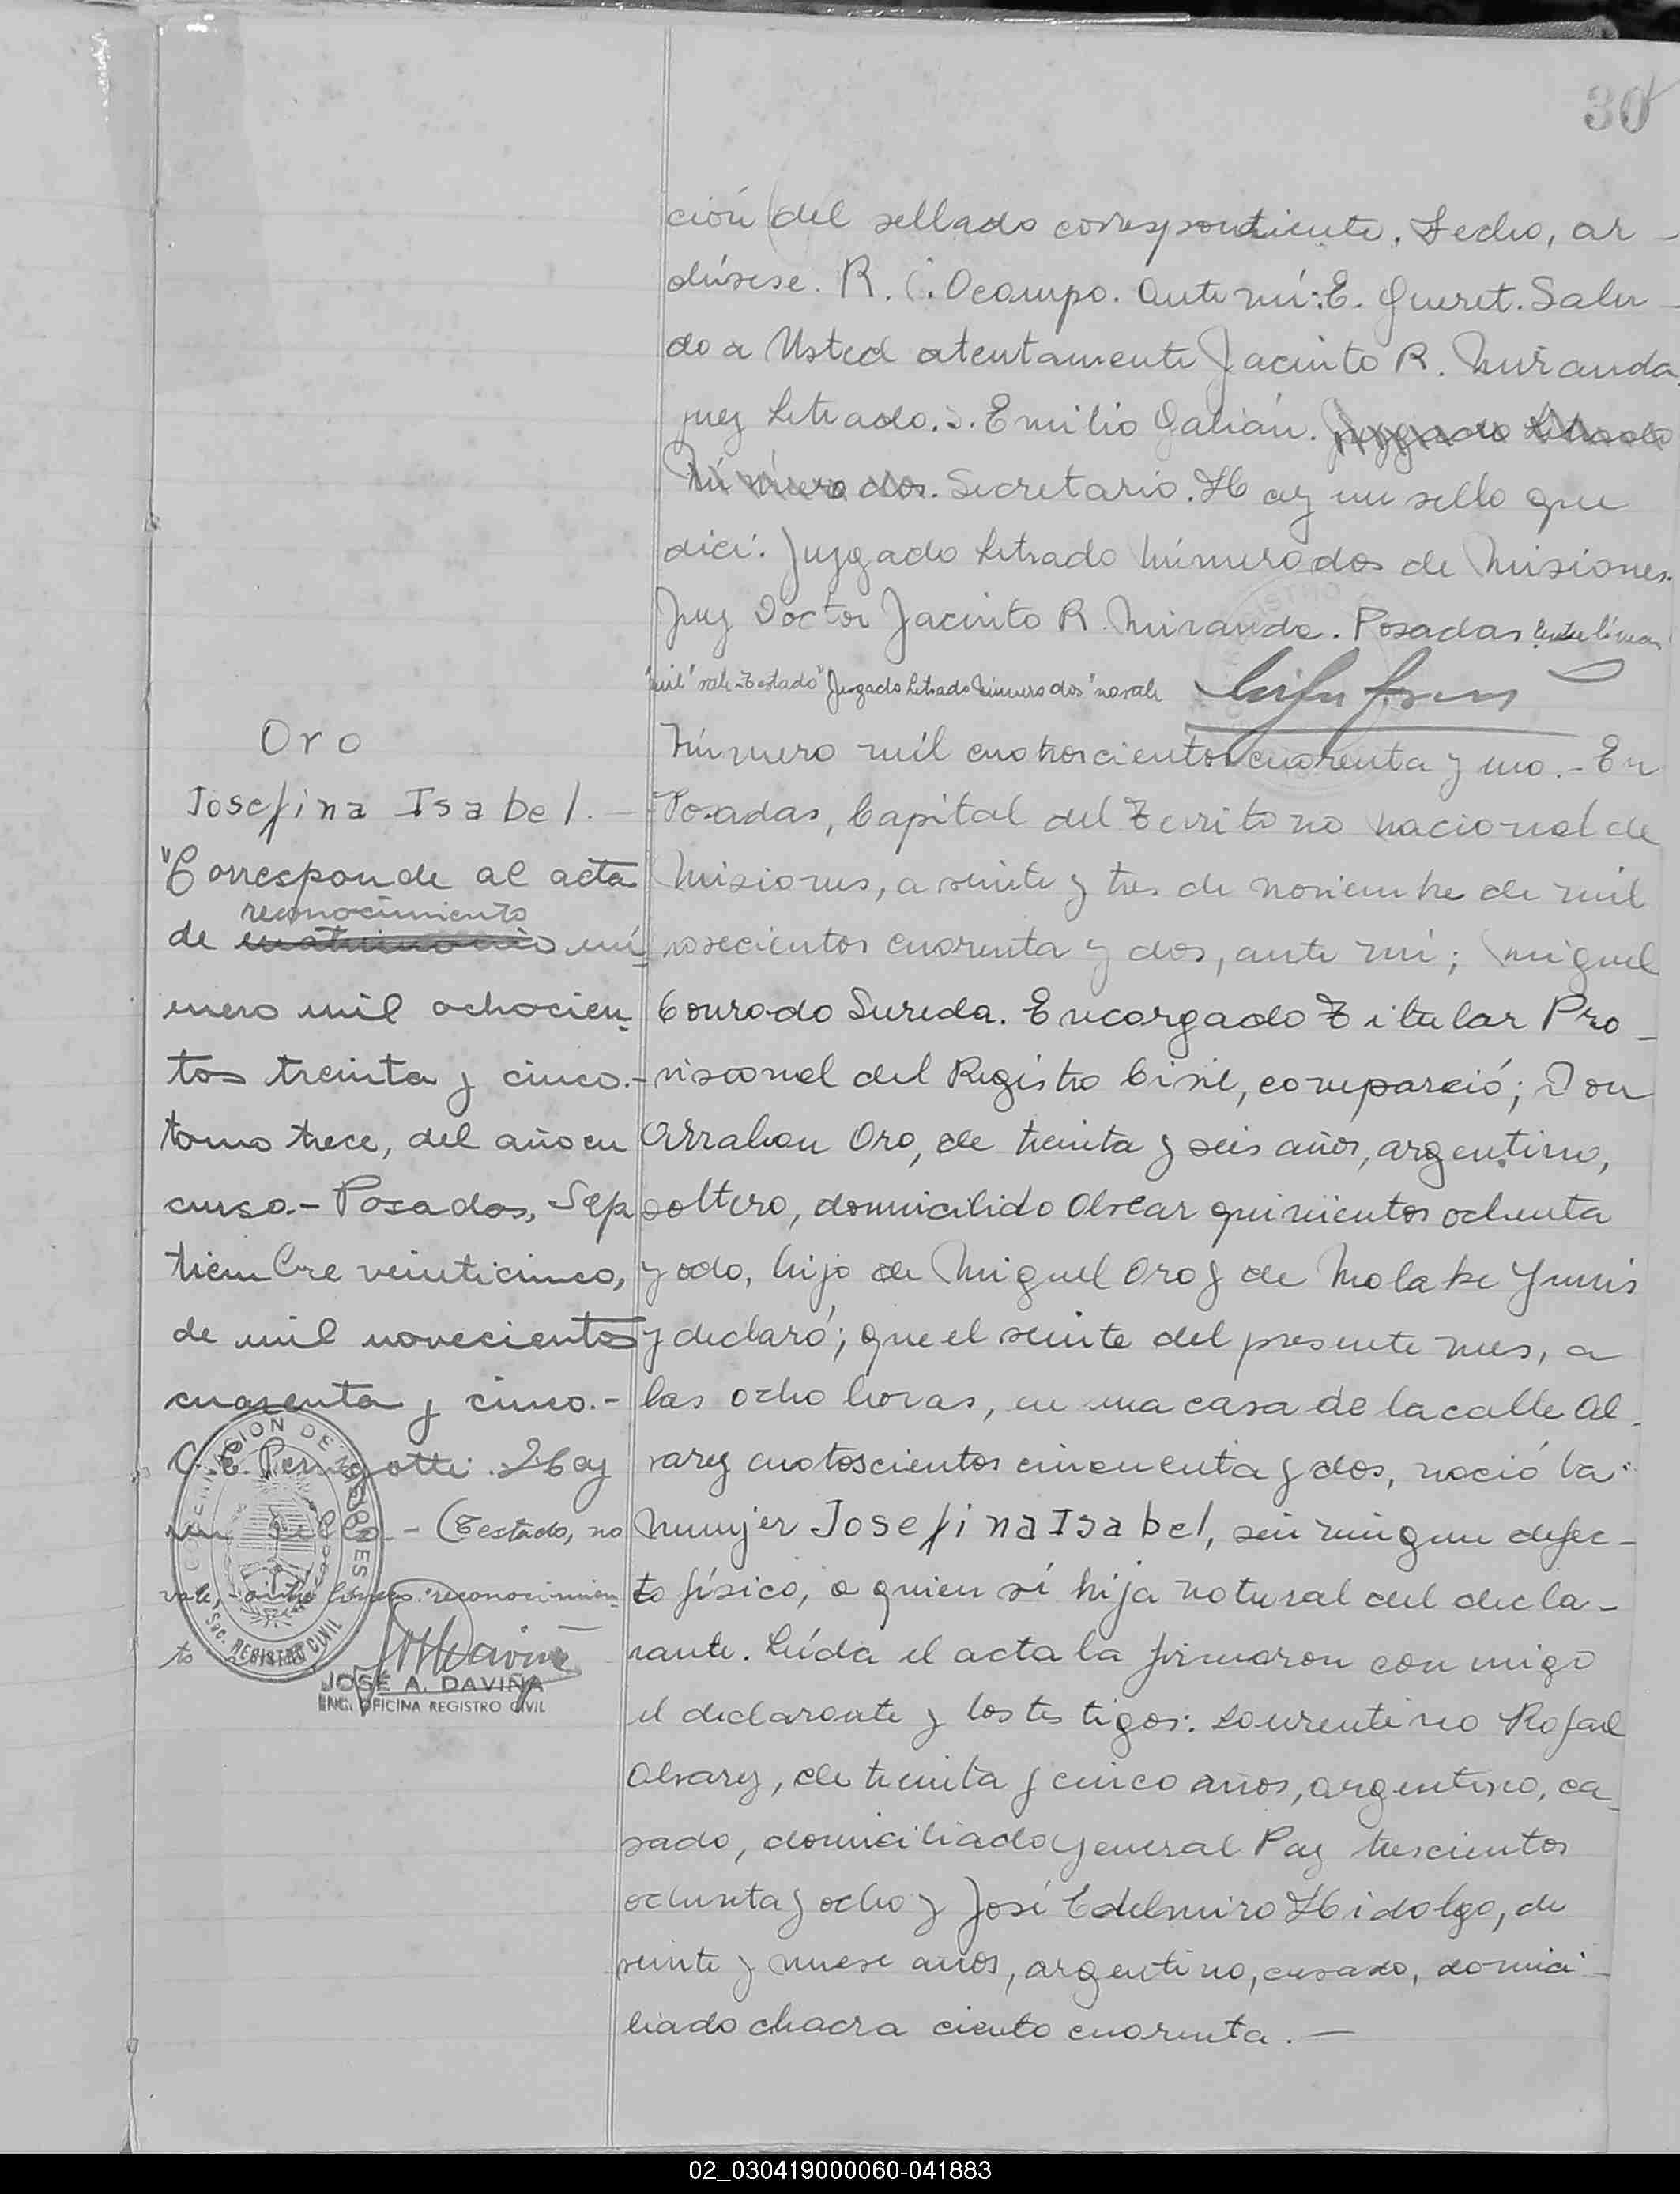 30
ción del sellado correspondiente. Hecho, ar-
chívese. R. C. Ocampo. Ante mí: E. Gueret. Salu-
do a Usted atentamente Jacinto R. Miranda
juez Letrado. S. Emilio Galián. Juzgado Letrado
Número dos. Secretario. Hay un sello que
dice: Juzgado Letrado Número dos de Misiones.
Juez Doctor Jacinto R. Miranda. Posadas. Entre líneas
"mil" vale. Testado "Juzgado Letrado Número dos" no vale
Número mil cuatroscientos cuarenta y uno.- En
Posadas, Capital del Territorio Nacional de
Misiones, a veinte y tres de noviembre de mil
novecientos cuarenta y dos, ante mí; Miguel
Conrado Sureda. Encargado Titular Pro-
visional del Registro Civil, compareció; Don
Arrahan Oro, de treinta y seis años, argentino,
soltero, domicilido Alvear quinientos ochenta
y odo, hijo de Miguel Oro y de Molake Yunis
y declaró; que el veinte del presente mes, a
las ocho horas, en una casa de la calle Al-
varez cuatoscientos cincuenta y dos, nació la
mujer Josefina Isabel, sin ningun defec-
to físico, a quien sí hija natural del decla-
rante. Leída el acta la firmaron con migo
el declarante y los testigos: Laurentino Rafael
Alvarez, de treinta y cinco años, argentino, ca-
sado, domiciliado General Paz trescientos
ochenta y ocho y José Edelmiro Hidalgo, de
veinte y nueve años, argentino, casado, domici-
liado chacra ciento cuarenta.—
Oro
Josefina Isabel.-
"Corresponde al acta
reconocimiento
de matrimonio nú-
mero mil ochocien-
tos treinta y cinco.-
tomo trece, del año en
curso.- Posadas, Sep
tiembre veinticinco,
de mil novecientos
cuarenta y cinco.-
C. E. Perigotti. Hay
un sello.- (Testado, no
vale,- entre líneas: "reconocimien-
to
GOBERNACION DE MISIONES
Sec. REGISTRO CIVIL
JOSÉ A. DAVIÑA
ENC. OFICINA REGISTRO CIVIL
02_030419000060-041883